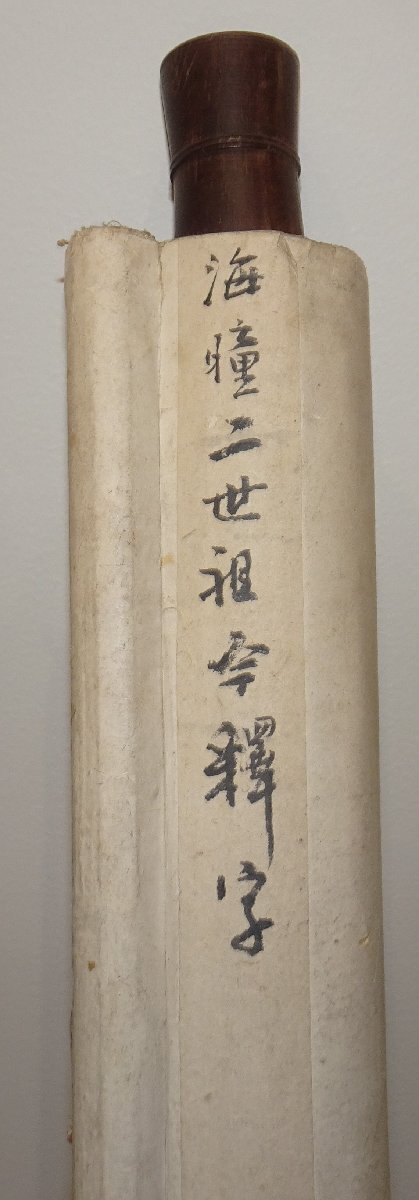 海曈二世祖今釋字